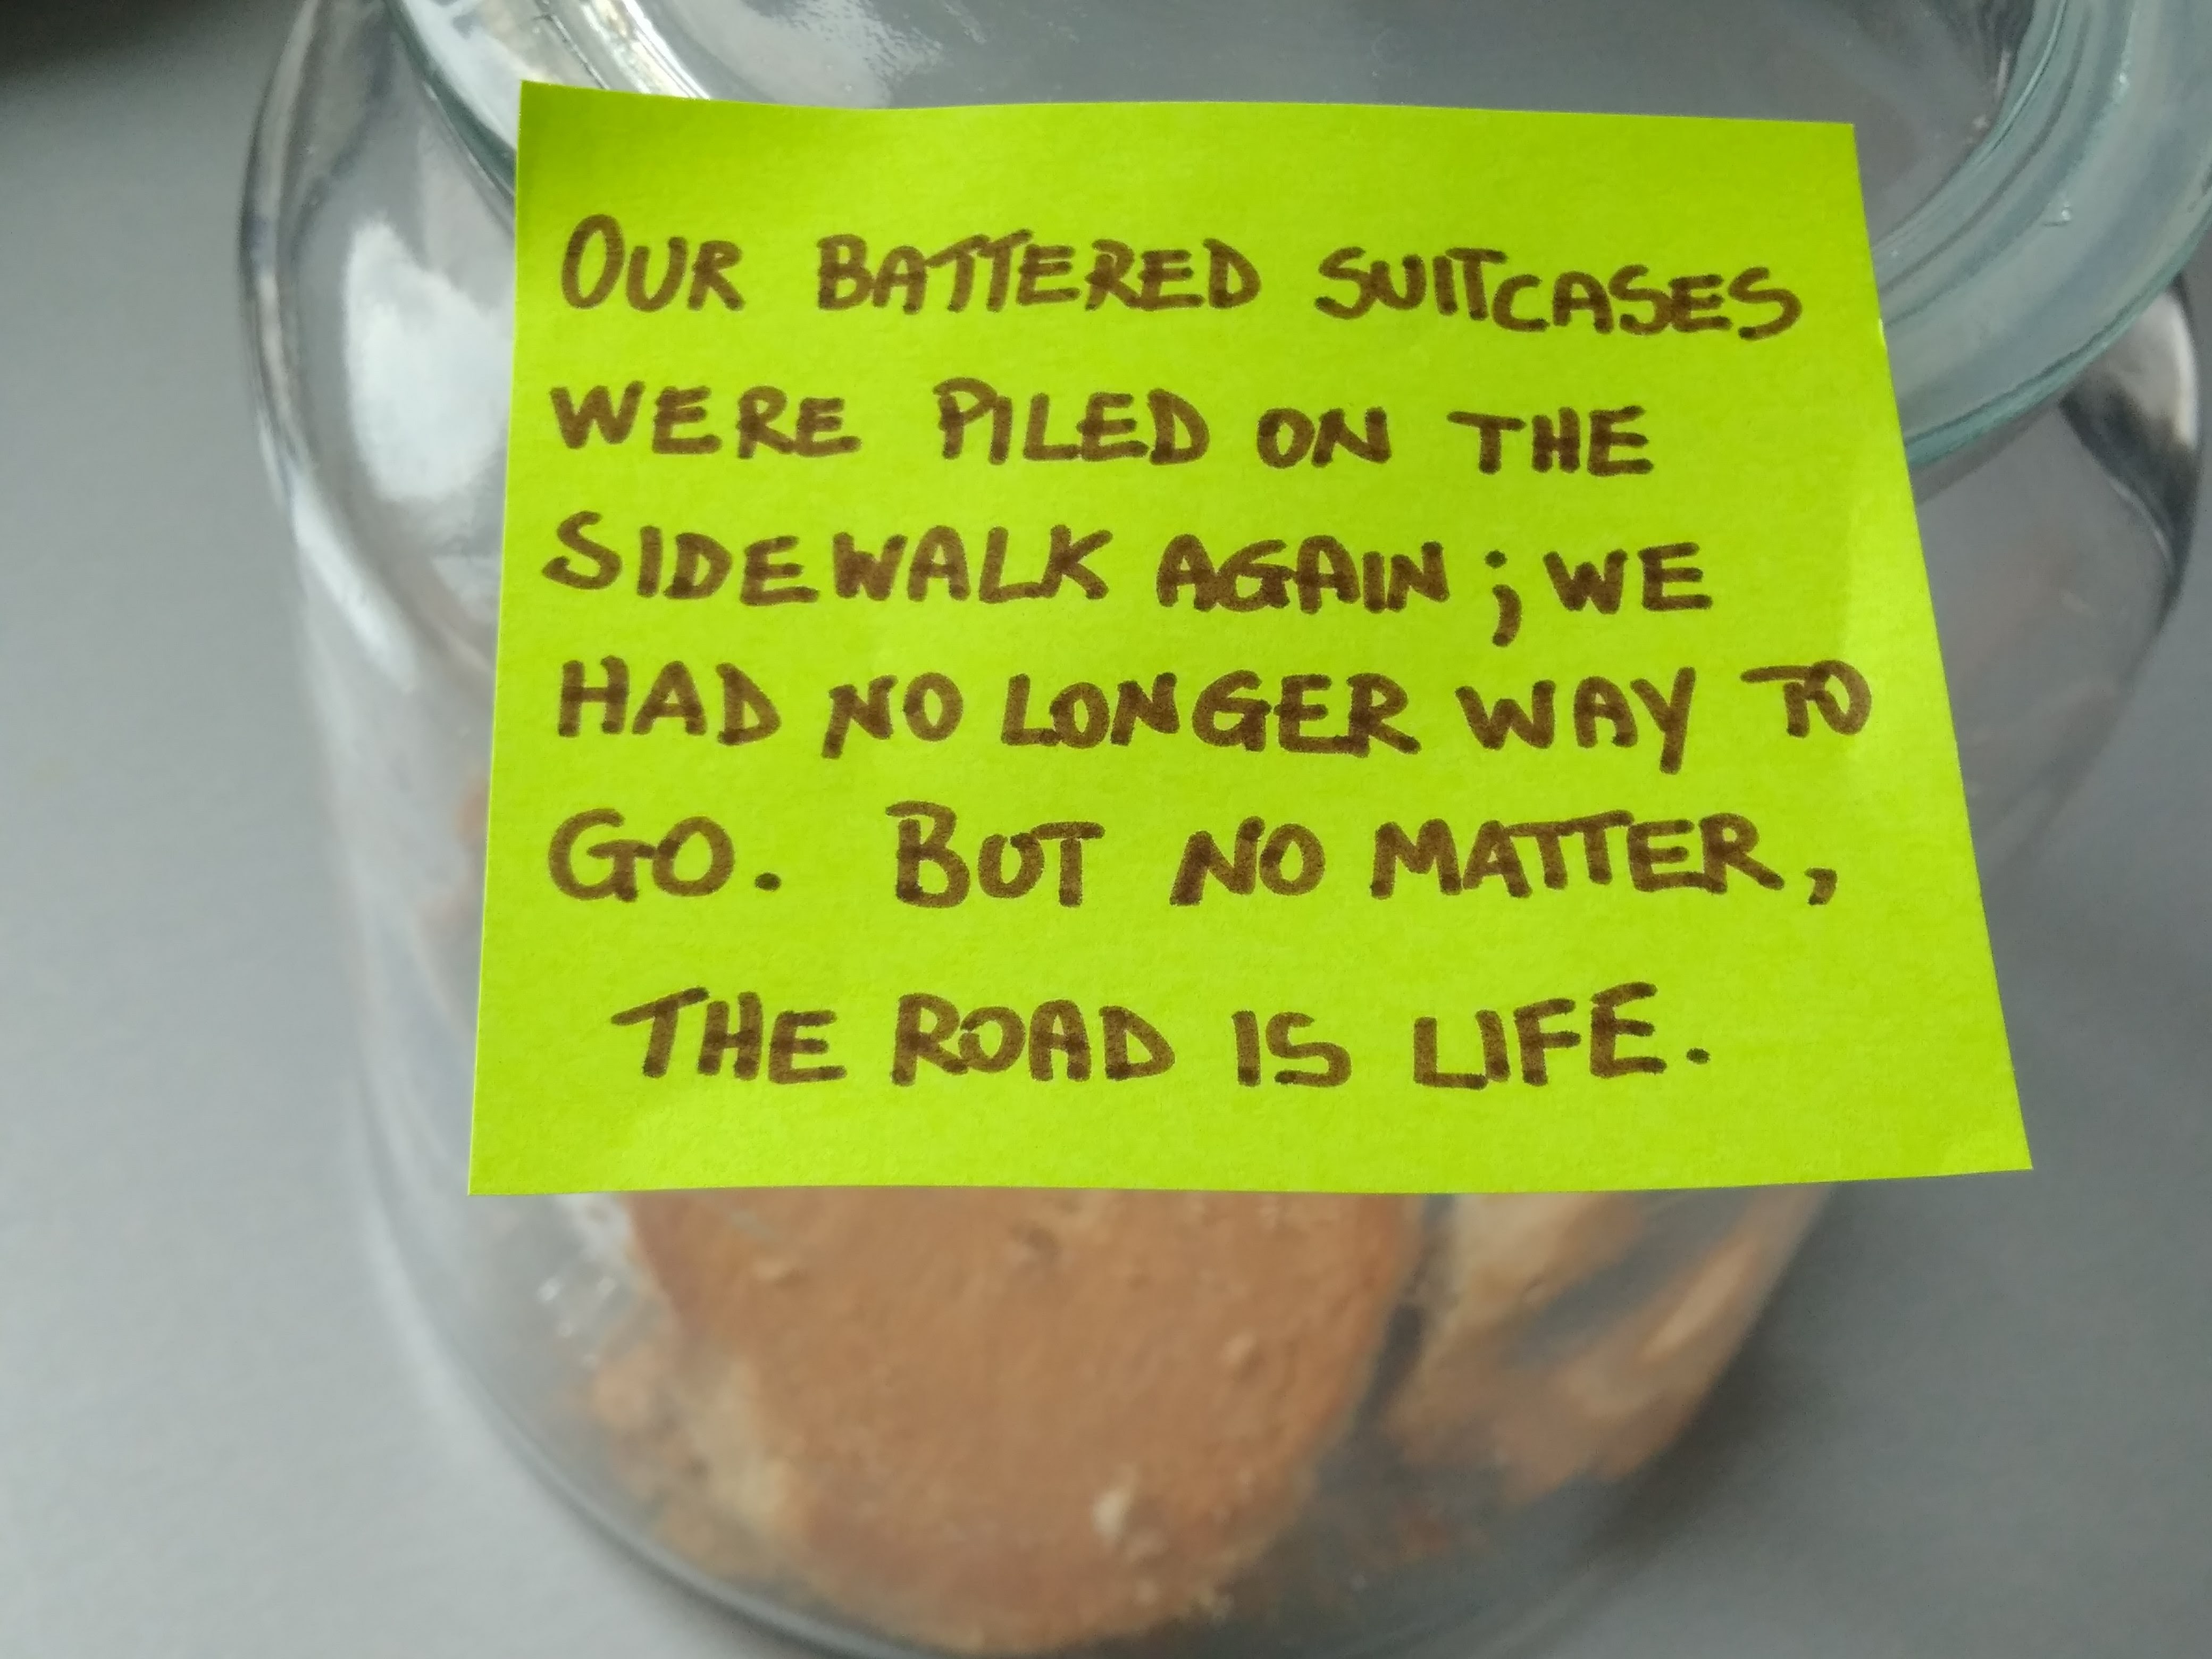 OUR BATTERED SUITCASES
WERE PILED ON THE
SIDEWALK AGAIN; WE
HAD NO LONGER WAY TO
GO. BUT NO MATTER,
THE ROAD IS LIFE.